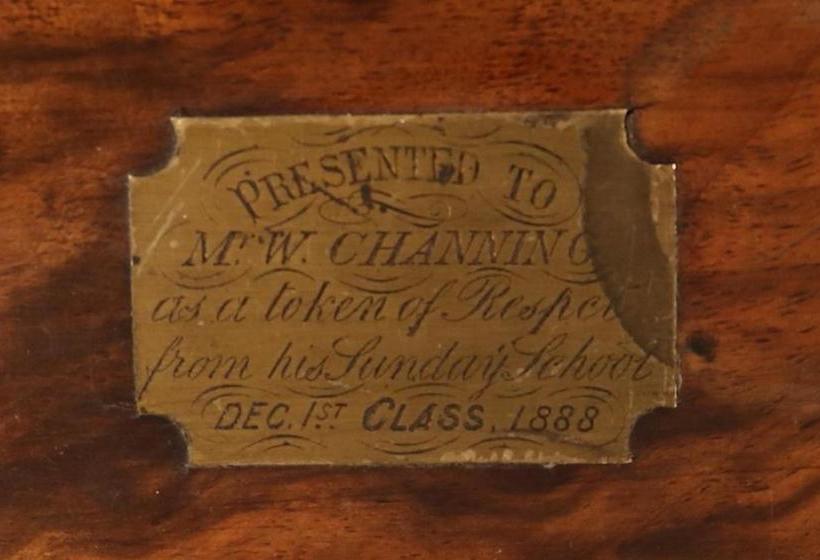 PRESENTED TO
Mr. W. CHANNING
as a token of Respect
from his Sunday School
DEC. 1ST CLASS, 1888